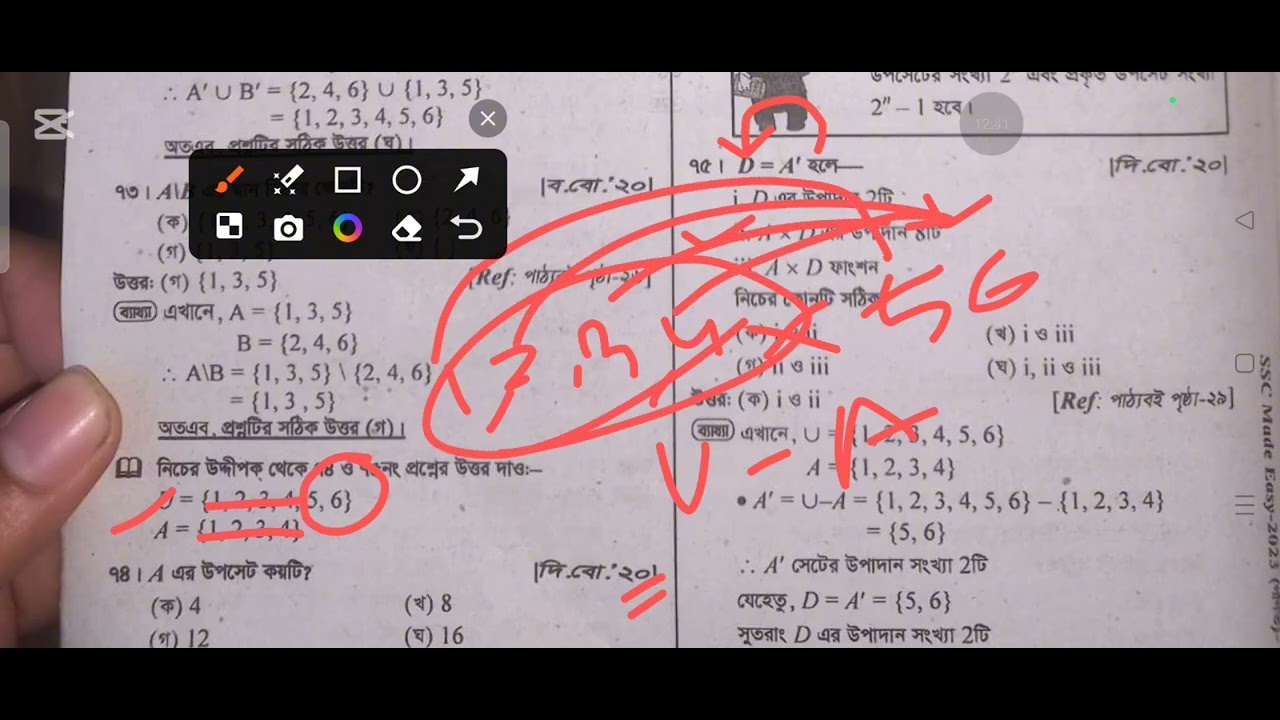 ∴ A′ ∪ B′ = {2, 4, 6} ∪ {1, 3, 5}
= {1, 2, 3, 4, 5, 6}
অতএব, প্রশ্নটির সঠিক উত্তর (ঘ)।
৭৩। A\B
|ব.বো.'২০|
(ক)
(গ)
উত্তর: (গ) {1, 3, 5}
[Ref: পাঠ্যবই পৃষ্ঠা-২৯]
ব্যাখ্যা এখানে, A = {1, 3, 5}
B = {2, 4, 6}
∴ A\B = {1, 3, 5} \ {2, 4, 6}
= {1, 3 , 5}
অতএব, প্রশ্নটির সঠিক উত্তর (গ)।
নিচের উদ্দীপক থেকে ৭৪ ও ৭৫নং প্রশ্নের উত্তর দাও:–
U = {1, 2, 3, 4, 5, 6}
A = {1, 2, 3, 4}
৭৪। A এর উপসেট কয়টি? |দি.বো.'২০|
(ক) 4 (খ) 8
(গ) 12 (ঘ) 16
উপসেটের সংখ্যা 2ⁿ এবং প্রকৃত উপসেট সংখ্যা
2ⁿ – 1 হবে।
12:41
৭৫। D = A′ হলে— |দি.বো.'২০|
i. D এর উপাদান 2টি
A × D এর উপাদান ৪টি
A × D ফাংশন
নিচের কোনটি সঠিক
(ক) i ও ii (খ) i ও iii
(গ) ii ও iii (ঘ) i, ii ও iii
উত্তর: (ক) i ও ii
[Ref: পাঠ্যবই পৃষ্ঠা-২৯]
ব্যাখ্যা এখানে, ∪ = {1, 2, 3, 4, 5, 6}
A = {1, 2, 3, 4}
• A′ = ∪–A = {1, 2, 3, 4, 5, 6} – {1, 2, 3, 4}
= {5, 6}
∴ A′ সেটের উপাদান সংখ্যা 2টি
যেহেতু, D = A′ = {5, 6}
সুতরাং D এর উপাদান সংখ্যা 2টি
SSC Made Easy-2023
3 4 5 6
U – A